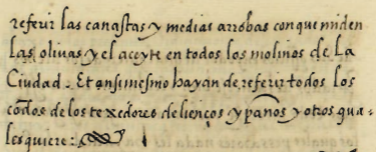 referir las canastas y medias arrobas con que miden
las olivas y el aceyte en todos los molinos de la
Ciudad. Et ansimesmo hayan de referir todos los
codos de los texedores de lienços y panos y otros qua-
lesquiere: